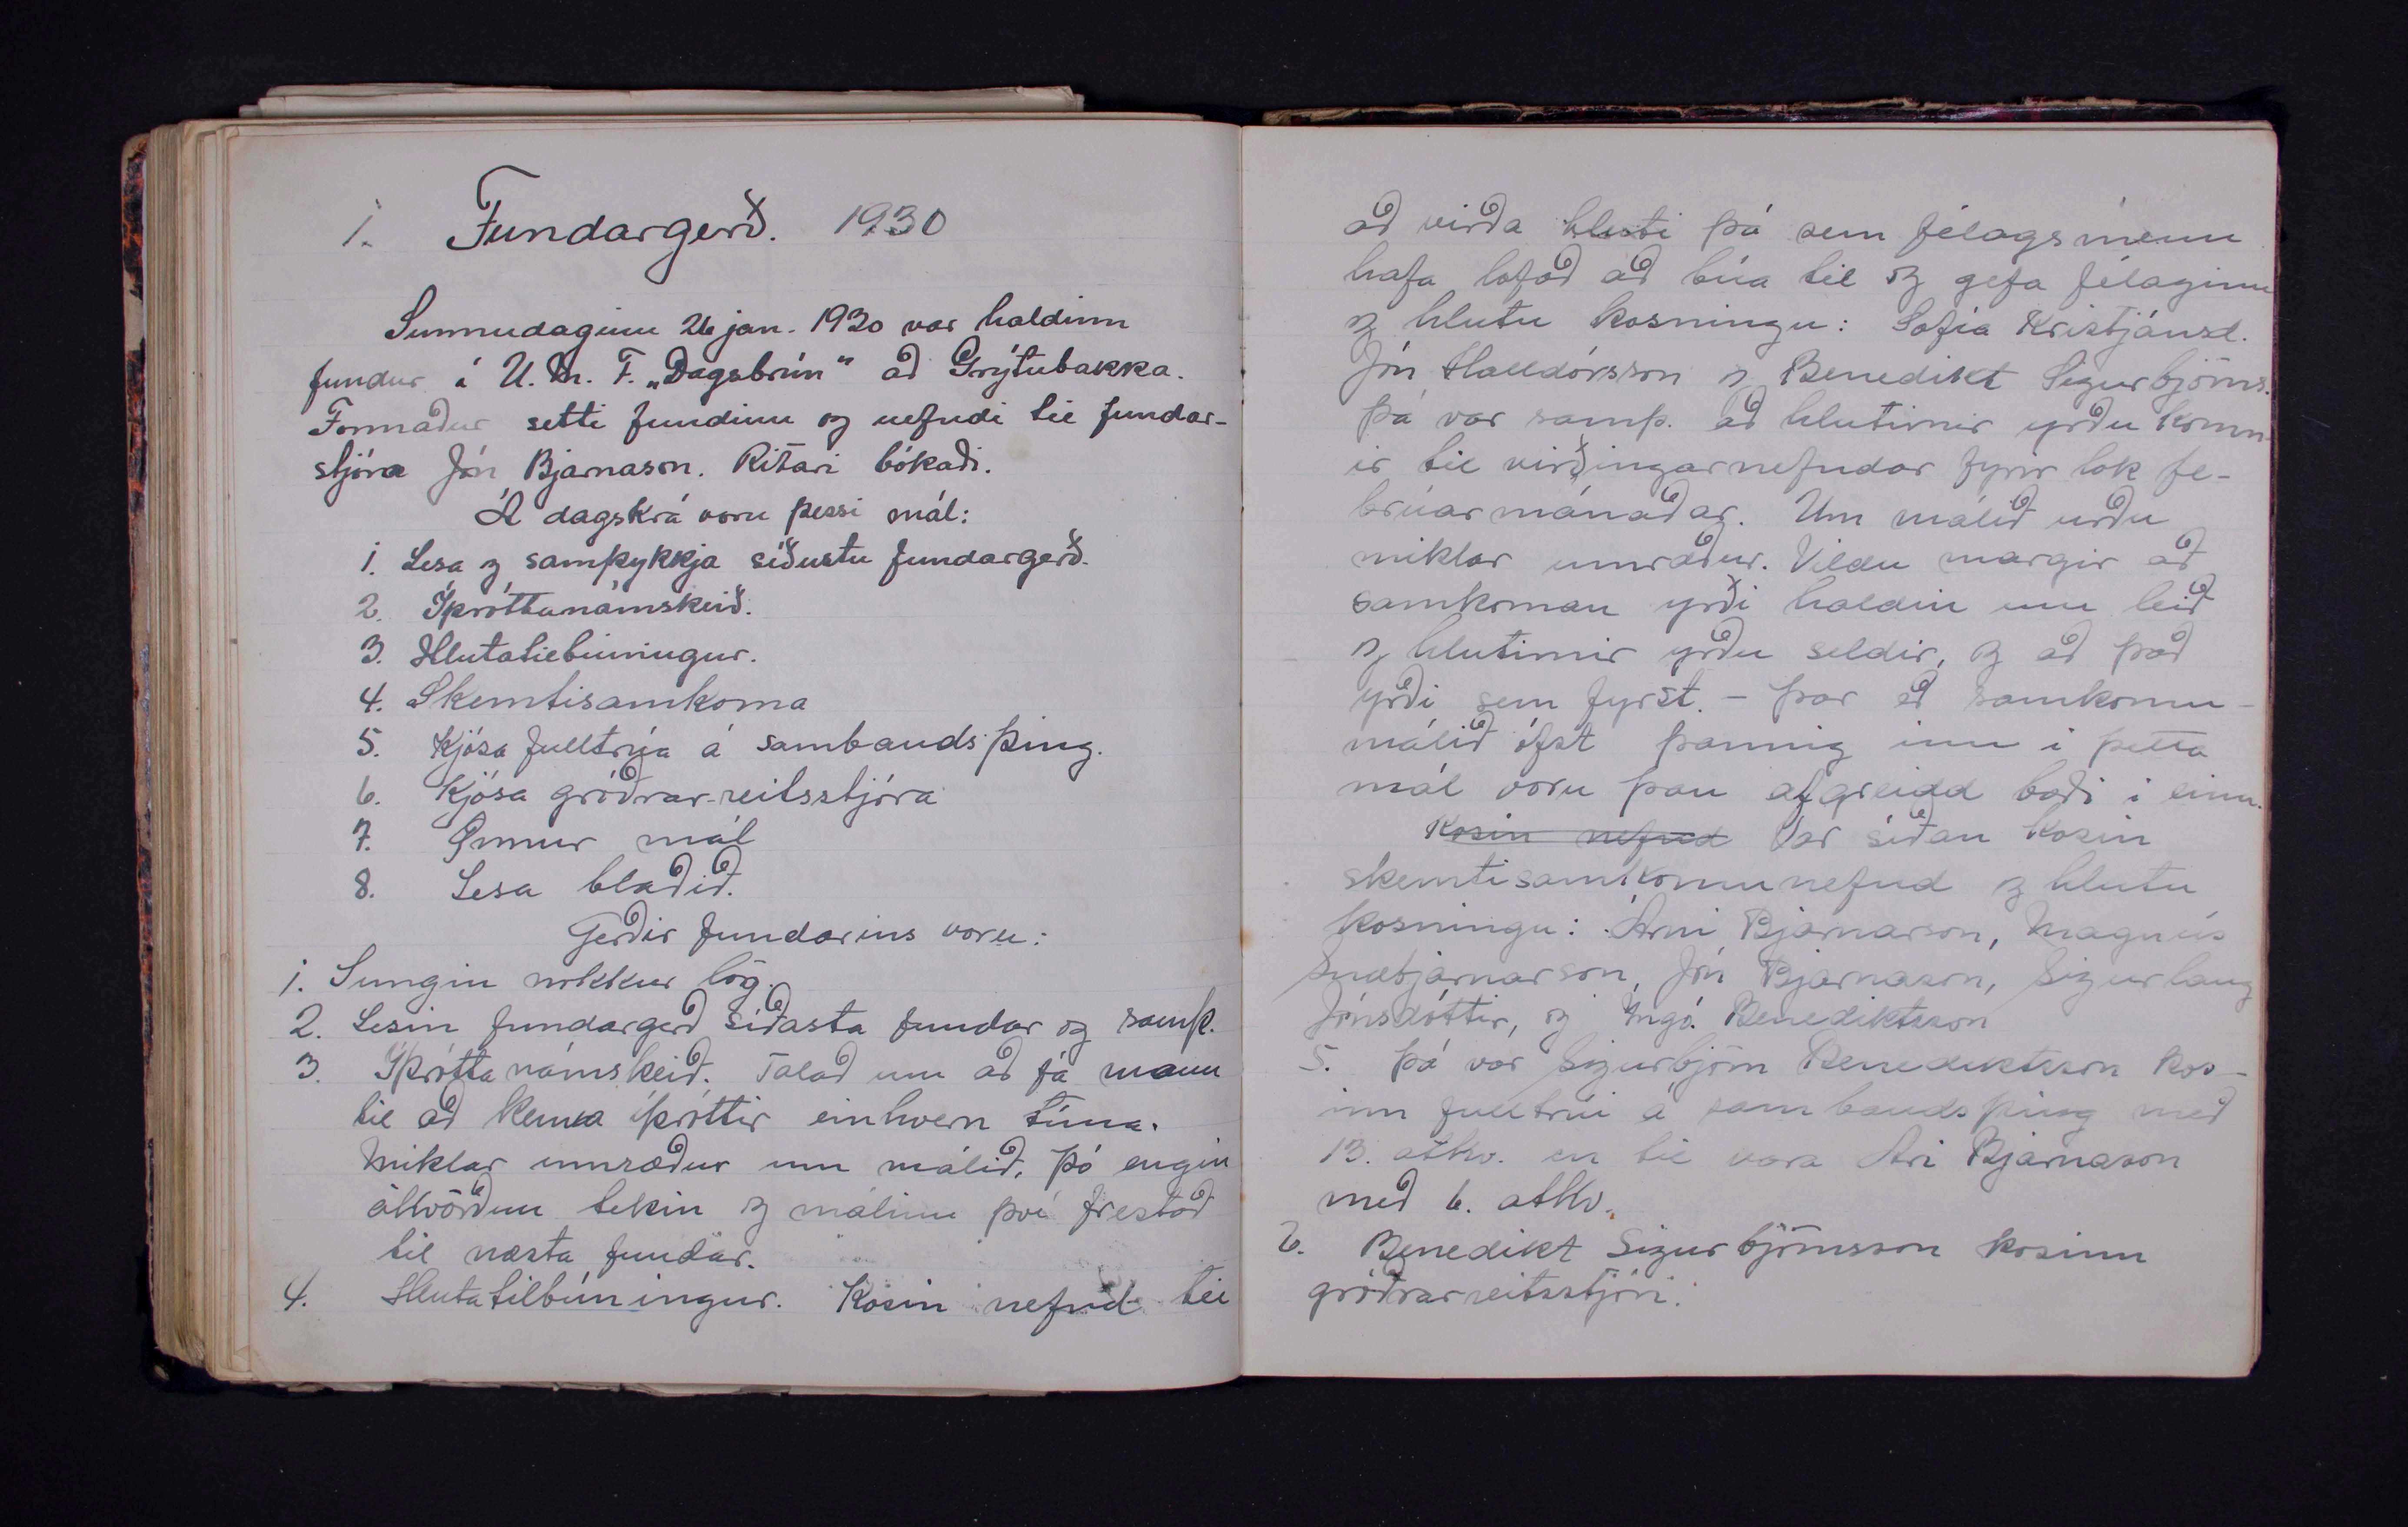 1. Fundargerð. 1930
Sunnudaginn 26 jan. 1930 var haldinn
fundur í U. M. F. „Dagsbrún“ að Grýtubakka.
Formaður setti fundinn og nefndi til fundar-
stjóra Jón Bjarnason. Ritari bókaði.
Á dagskrá voru þessi mál:
1. Lesa og samþykkja síðustu fundargerð.
2. Íþróttanámskeið.
3. Hlutatilbúningur.
4. Skemtisamkoma
5. Kjósa fulltrúa á sambandsþing.
6. Kjósa gróðrar-reitsstjóra
7. Önnur mál
8. Lesa blaðið.
Gerðir fundarins voru:
1. Sungin nokkur lög.
2. Lesin fundargerð síðasta fundar og samþ.
3. Íþróttanámskeið. Talað um að fá mann
til að kenna íþróttir einhvern tíma.
Miklar umræður um málið, þó engin
ákvörðun tekin og málinu því frestað
til næsta fundar.
4. Hlutatilbúningur. Kosin nefnd til
að virða hluti þá sem félagsmenn
hafa lofað að búa til og gefa félaginu
og hlutu kosningu: Sofía Kristjánsd.
Jón Halldórsson og Benedikt Sigurbjörns.
Þá var samþ. að hlutirnir yrðu komn-
ir til virðingarnefndar fyrir lok fe-
brúarmánaðar. Um málið urðu
miklar umræður. Vildu margir að
samkoman yrði haldin um leið
og hlutirnir yrðu seldir, og að það
yrði sem fyrst. - Þar eð samkomu-
málið ófst þannig inn í þetta
mál voru þau afgreidd bæði í einu.
Kosin nefnd Var síðan kosin
skemtisamkomunefnd og hlutu
kosningu: Árni Bjarnarson, Magnús
Snæbjarnarson, Jón Bjarnason, Sigurlaug
Jónsdóttir, og Ingó. Benediktsson
5. Þá var Sigurbjörn Benediktsson kos-
inn fulltrúi á sambandsþing með
13. atkv. en til vara Ari Bjarnason
með 6. atkv.
6. Benedikt Sigurbjörnsson kosinn
gróðrarreitsstjóri.